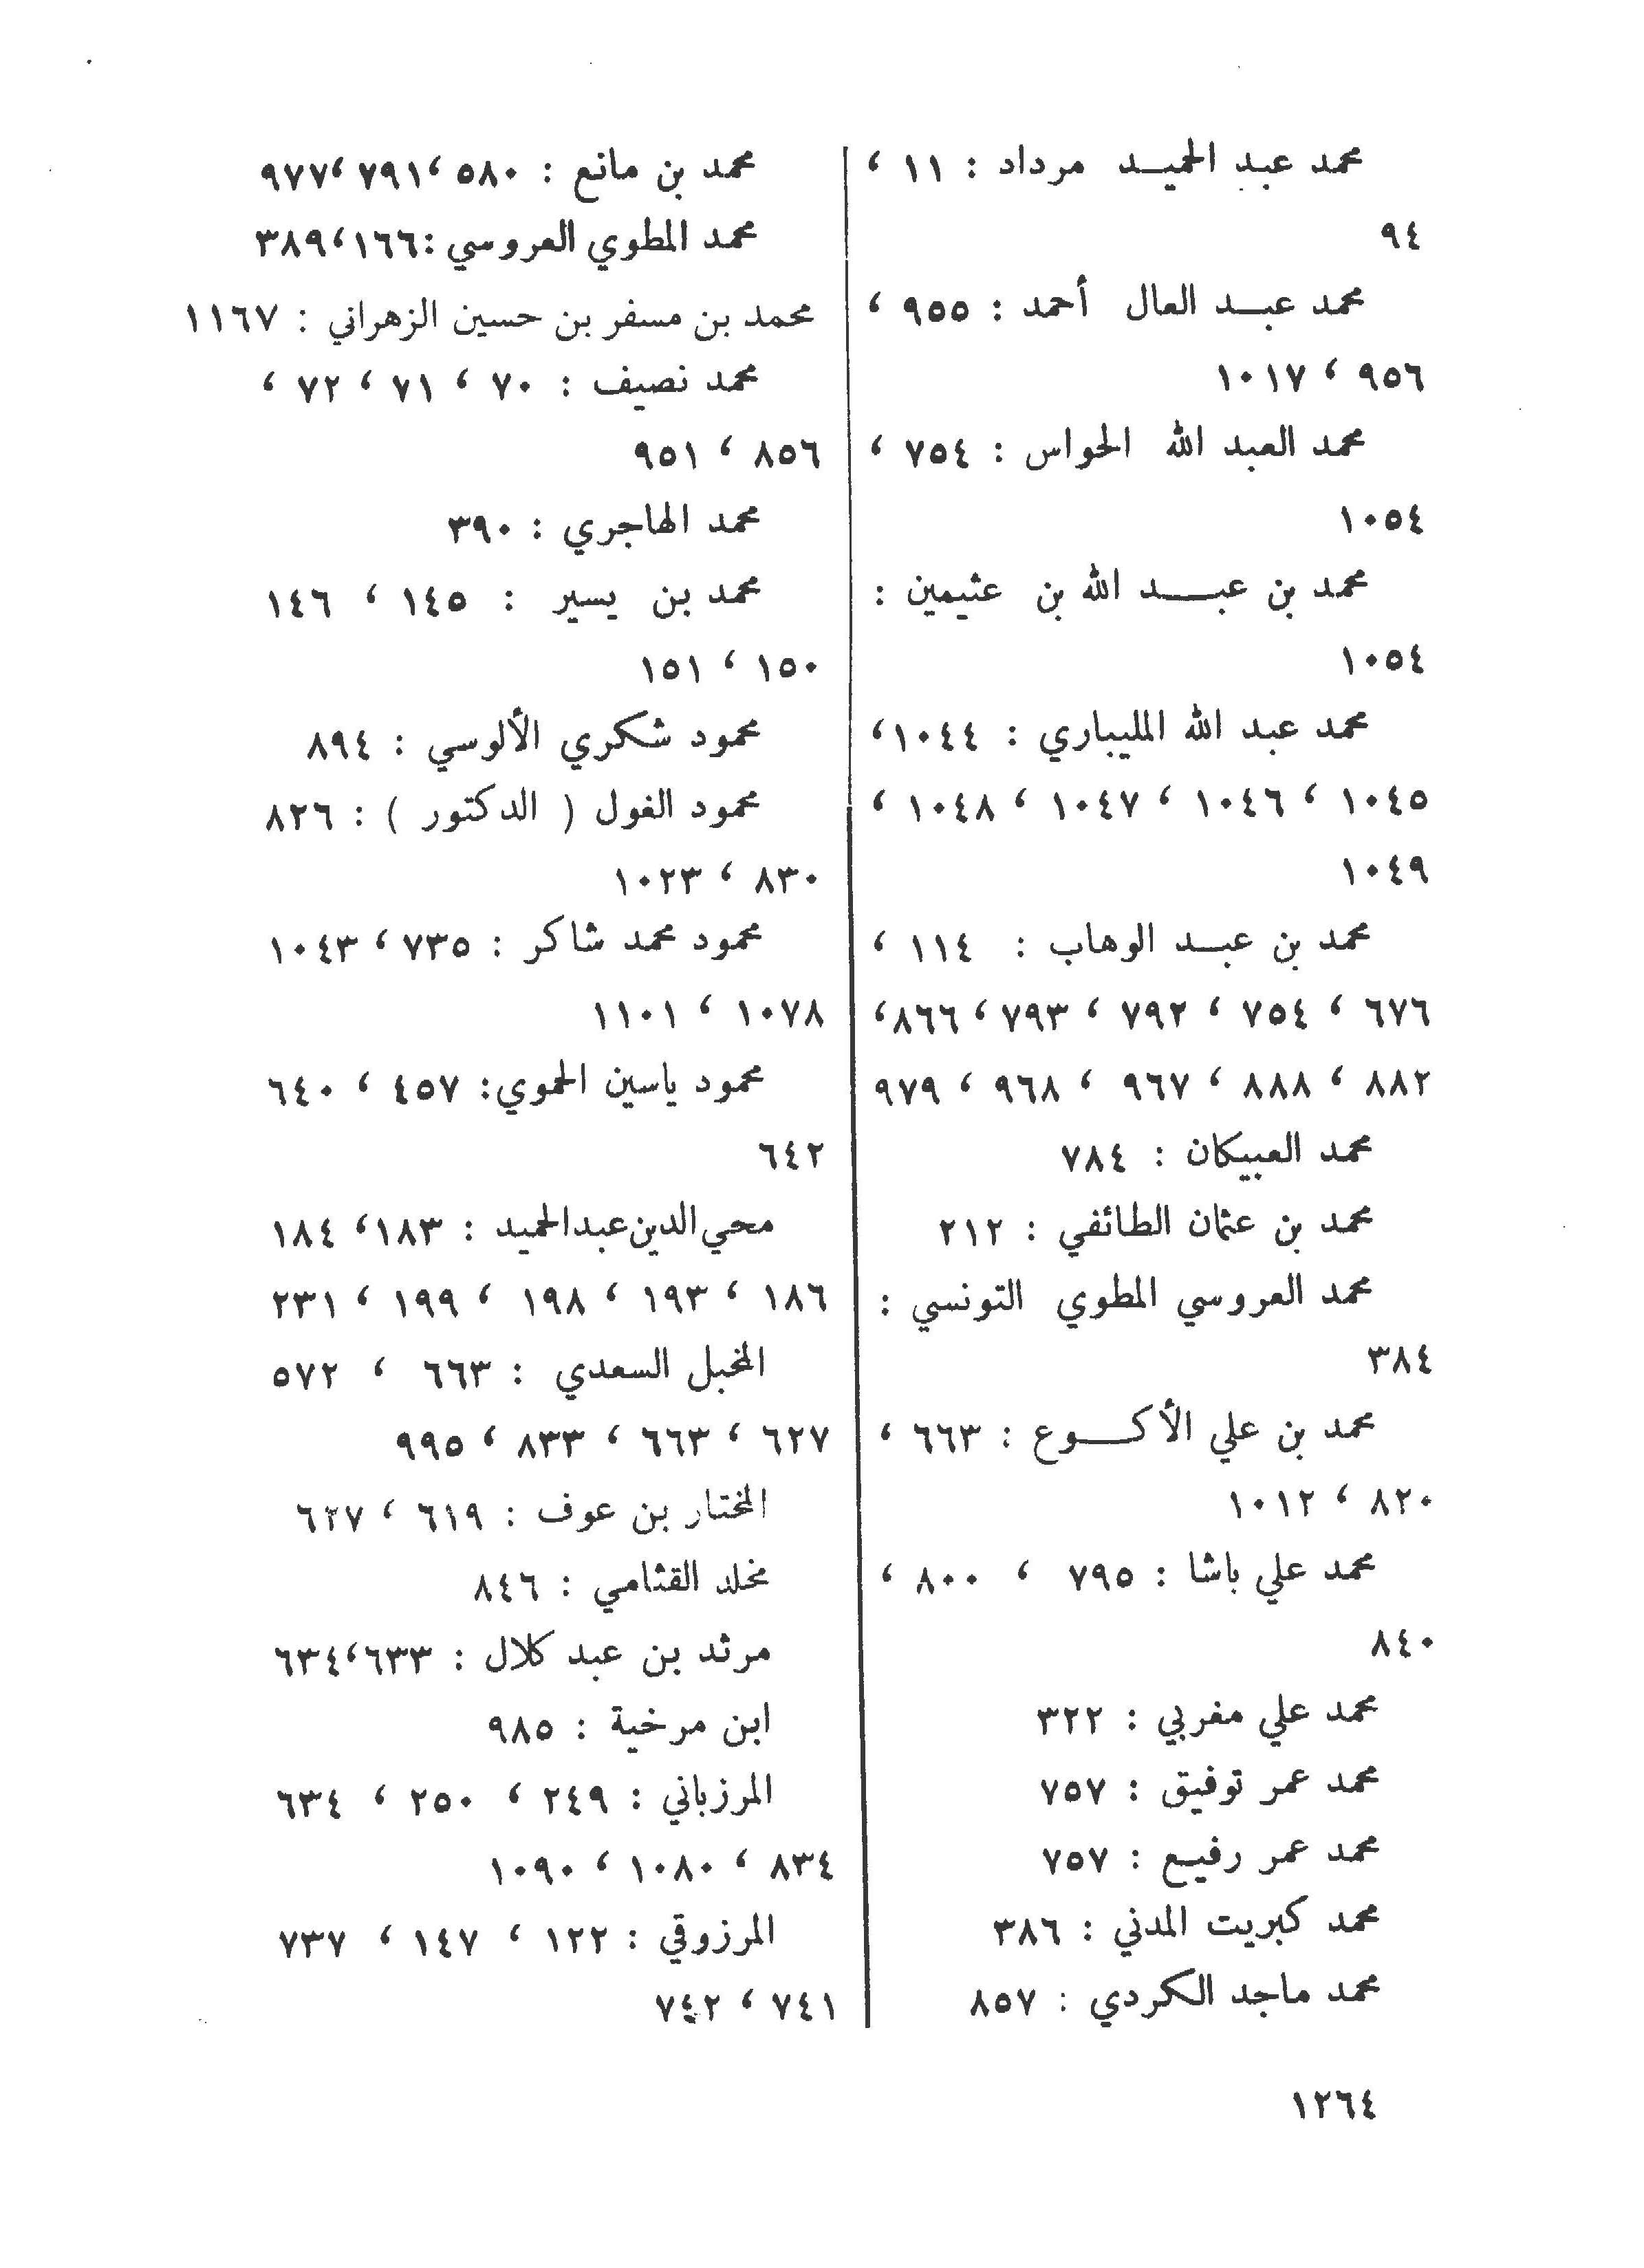 محمد عبد الحميد مرداد : ١١ ،
٩٤
محمد عبد العال أحمد : ٩٥٥ ،
٩٥٦ ، ١٠١٧
محمد العبد الله الحواس : ٧٥٤ ،
١٠٥٤
محمد بن عبد الله بن عثيمين :
١٠٥٤
محمد عبد الله المليباري : ١٠٤٤،
١٠٤٥ ، ١٠٤٦ ، ١٠٤٧ ، ١٠٤٨ ،
١٠٤٩
محمد بن عبد الوهاب : ١١٤ ،
٦٧٦ ، ٧٥٤ ، ٧٩٢ ، ٧٩٣ ، ٨٦٦،
٨٨٢ ، ٨٨٨ ، ٩٦٧ ، ٩٦٨ ، ٩٧٩
محمد العبيكان : ٧٨٤
محمد بن عثمان الطائفي : ٢١٢
محمد العروسي المطوي التونسي :
٣٨٤
محمد بن علي الأكوع : ٦٦٣ ،
٨٢٠ ، ١٠١٢
محمد علي باشا : ٧٩٥ ، ٨٠٠ ،
٨٤٠
محمد علي مغربي : ٣٢٢
محمد عمر توفيق : ٧٥٧
محمد عمر رفيع : ٧٥٧
محمد كبريت المدني : ٣٨٦
محمد ماجد الكردي : ٨٥٧
محمد بن مانع : ٥٨٠ ،٧٩١ ،٩٧٧
محمد المطوي العروسي :١٦٦ ،٣٨٩
محمد بن مسفر بن حسين الزهراني : ١١٦٧
محمد نصيف : ٧٠ ، ٧١ ، ٧٢ ،
٨٥٦ ، ٩٥١
محمد الهاجري : ٣٩٠
محمد بن يسير : ١٤٥ ، ١٤٦
١٥٠ ، ١٥١
محمود شكري الألوسي : ٨٩٤
محمود الغول ( الدكتور ) : ٨٢٦
٨٣٠ ، ١٠٢٣
محمود محمد شاكر : ٧٣٥ ، ١٠٤٣
١٠٧٨ ، ١١٠١
محمود ياسين الحموي: ٤٥٧ ، ٦٤٠
٦٤٢
محي الدين عبد الحميد : ١٨٣ ، ١٨٤
١٨٦ ، ١٩٣ ، ١٩٨ ، ١٩٩ ، ٢٣١
المخبل السعدي : ٦٦٣ ، ٥٧٢
٦٢٧ ، ٦٦٣ ، ٨٣٣ ، ٩٩٥
المختار بن عوف : ٦١٩ ، ٦٢٧
مخلد القثامي : ٨٤٦
مرثد بن عبد كلال : ٦٣٣ ،٦٣٤
ابن مرخية : ٩٨٥
المرزباني : ٢٤٩ ، ٢٥٠ ، ٦٣٤
٨٣٤ ، ١٠٨٠ ، ١٠٩٠
المرزوقي : ١٢٢ ، ١٤٧ ، ٧٣٧
٧٤١ ، ٧٤٢
١٢٦٤